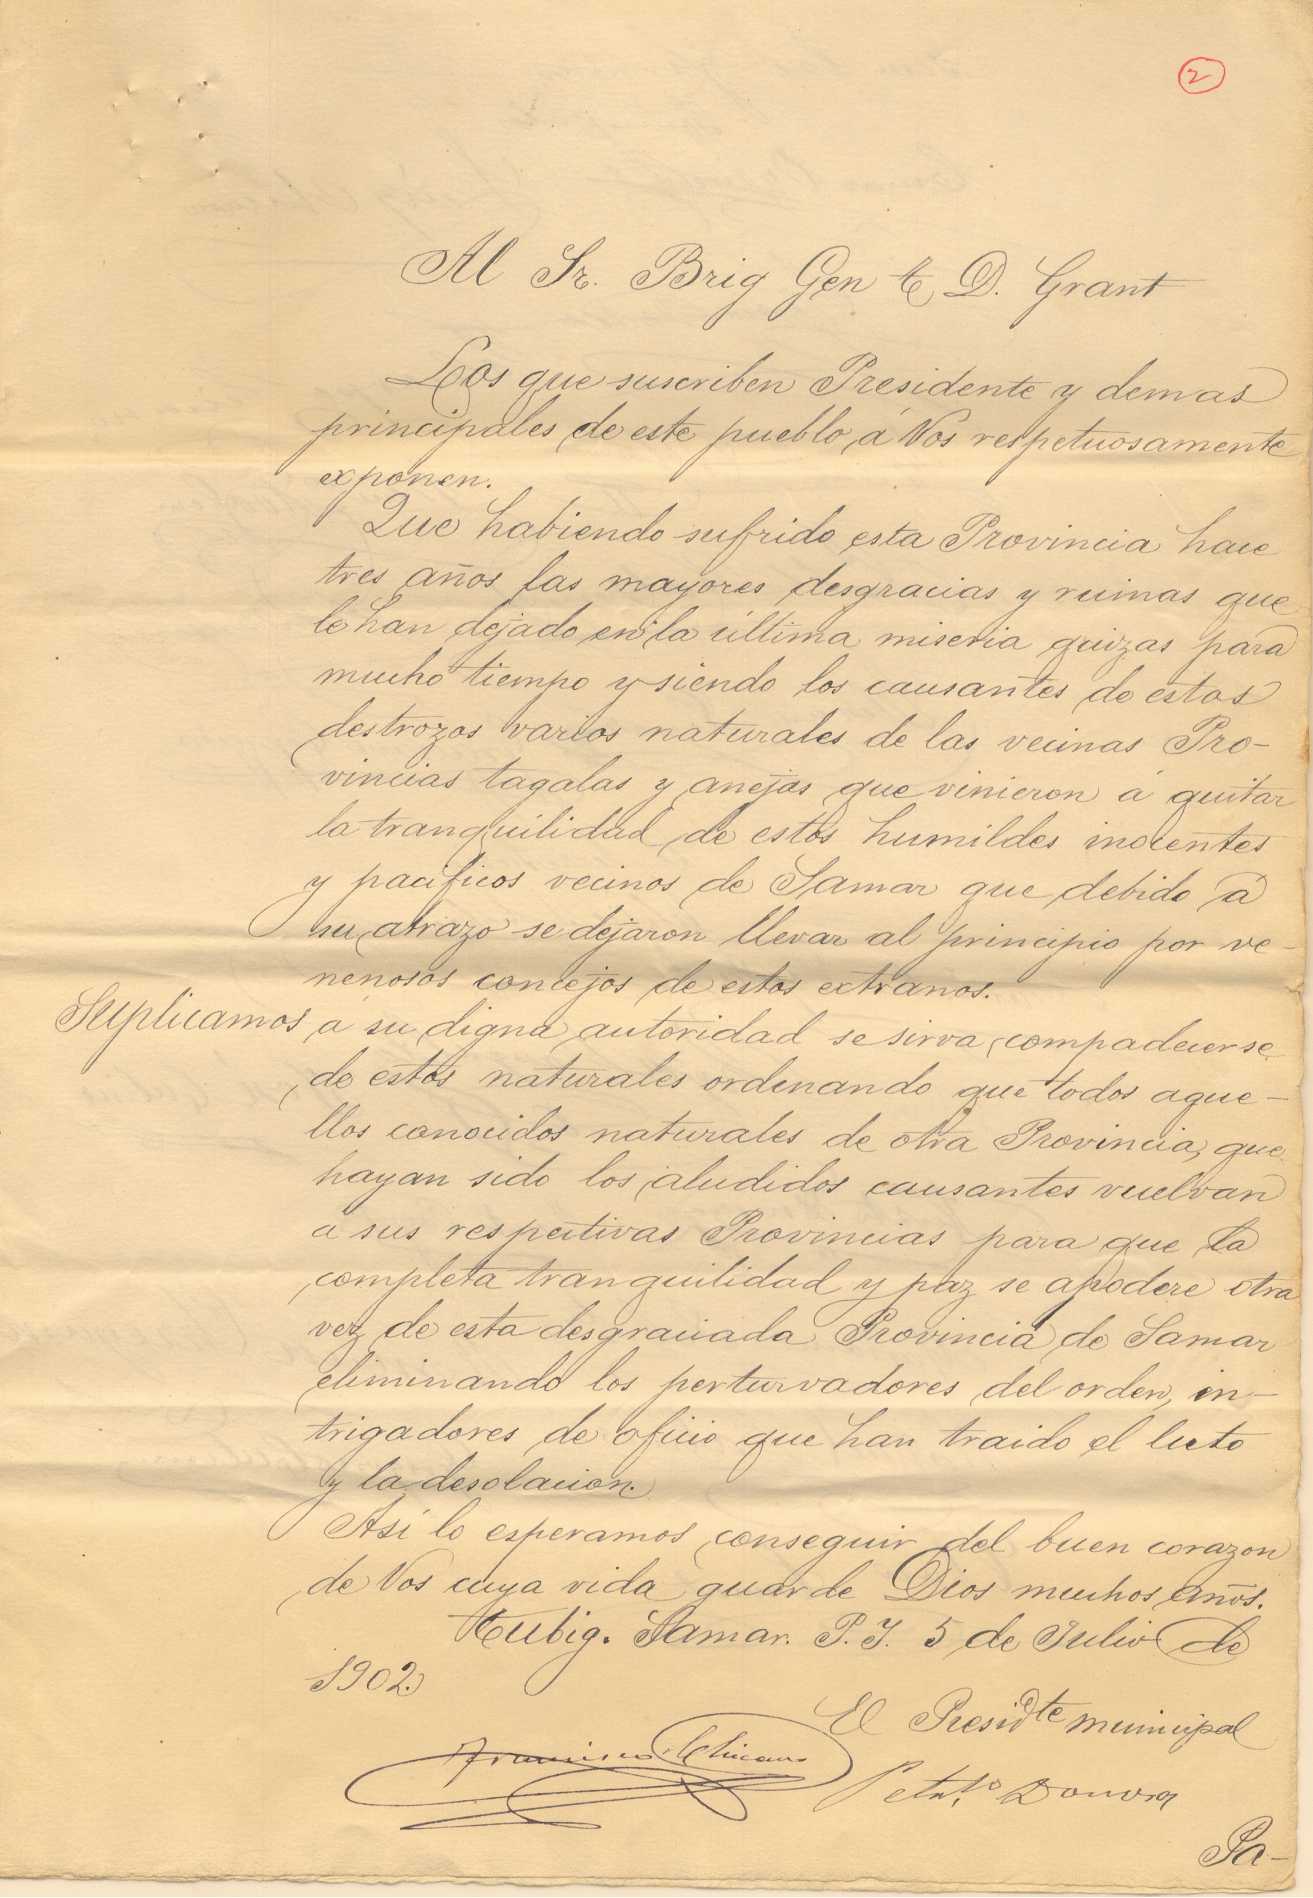 2
Al Sr. Brig Gen F. D. Grant
Los que suscriben Presidente y demas
principales de este pueblo, á Vos respetuosamente
exponen.
Que habiendo sufrido esta Provincia hace
tres años las mayores desgracias y ruinas que
le han dejado en la última miseria quizas para
mucho tiempo y siendo los causantes de estos
destrozos varios naturales de las vecinas Pro-
vincias tagalas y anejas que vinieron á quitar
la tranquilidad de estos humildes inocentes
y pacificos vecinos de Samar que debido á
su atrazo se dejaron llevar al principio por ve-
nenosos concejos de estos extranos.
Suplicamos á su digna autoridad se sirva compadecerse
de estos naturales ordenando que todos aque-
llos conocidos naturales de otra Provincia, que
hayan sido los aludidos causantes vuelvan
á sus respectivas Provincias para que la
completa tranquilidad y paz se apodere otra
vez de esta desgraciada Provincia de Samar
eliminando los perturvadores del orden, in-
trigadores de oficio que han traido el luto
y la desolacion.
Asi lo esperamos conseguir del buen corazon
de Vos cuya vida guarde Dios muchos años.
Tubig. Samar. P. I. 5 de Julio de
1902.
El Presidte municipal
Francisco
Pa-